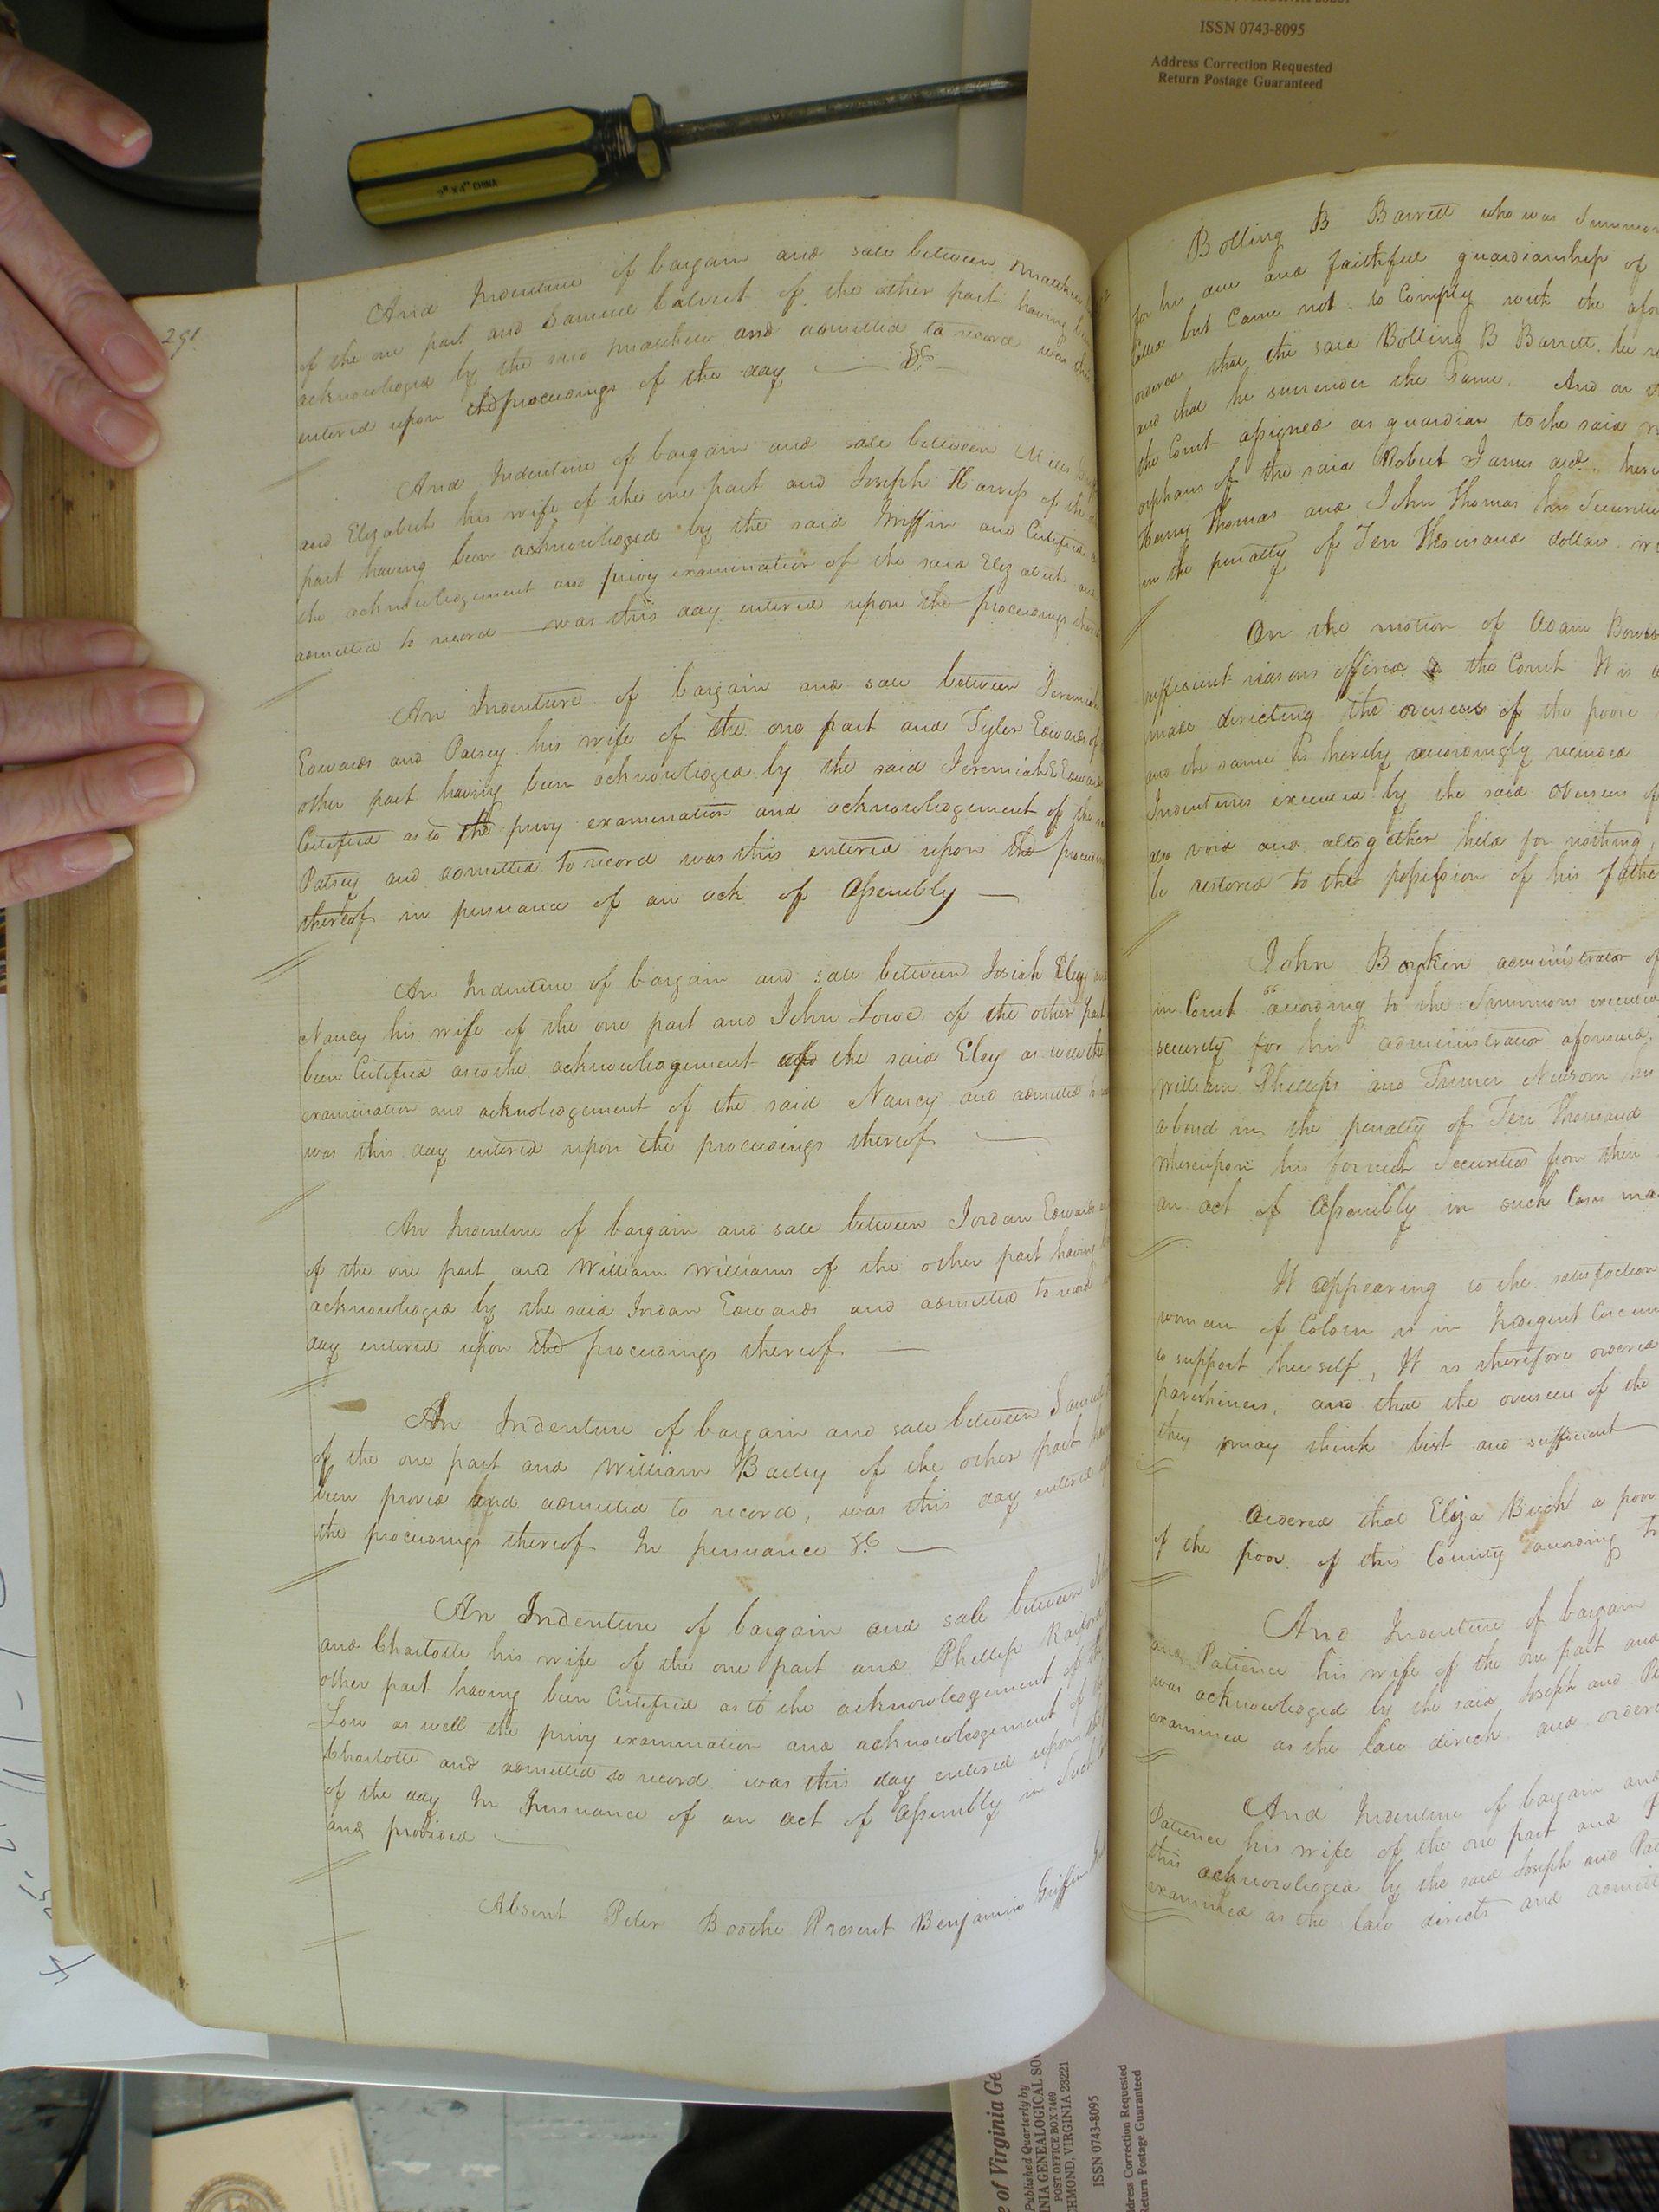 ISSN 0743-8095
Address Correction Requested
Return Postage Guaranteed
2" x 4" CHINA
298
And Indenture of bargain and sale between Matthew
of the one part and Samuel Calvert of the other part having been
acknowledged by the said Matthew and admitted to record was this
entered upon the proceedings of the day &C
And Indenture of bargain and sale between
and Elizabeth his wife of the one part and Joseph Harris of the
part having been acknowledged by the said Griffin and Certified
the acknowledgement and privy examination of the said Elizabeth and
admitted to record was this day entered upon the proceedings
An Indenture of bargain and sale between Jeremiah
Edwards and Patsey his wife of the one part and Tyler Edwards of
other part having been acknowledged by the said Jeremiah Edwards
Certified as to the privy examination and acknowledgement of the
Patsey and admitted to record was this entered upon the
thereof in pursuance of an ack of Assembly
An Indenture of bargain and sale between Josiah Eley and
Nancy his wife of the one part and John Lowe of the other part
been Certified as to the acknowledgement of the said Eley as well the
examination and acknoledgement of the said Nancy and admitted to
was this day entered upon the proceedings thereof
An Indenture of bargain and sale between Jordan Edwards
of the one part and William Williams of the other part having
acknowledged by the said Jordan Edwards and admitted to record
day entered upon the proceedings thereof
An Indenture of bargain and sale between Samuel
of the one part and William Bailey of the other part
been proved and admitted to record, was this day entered
the proceedings thereof In pursuance &C
An Indenture of bargain and sale between
and Charlotte his wife of the one part and Phillip Raiford
other part having been Certified as to the acknowledgement of the
Low as well the privy examination and acknowledgement of the
Charlotte and admitted to record was this day entered upon the
of the day In Pursuance of an act of Assembly in such
and provided
Absent Peter Boothe Present Benjamin Griffin
Bolling B Barrett who was Summon
for his due and faithful guardianship of
Called but Came not to Comply with the afor
ordered that the said Bolling B Barrett be
and that he surrender the Same. And on
the Court assigned as guardian to the said
orphans of the said Robert James decd.
Henry Thomas and John Thomas his Securities
in the penalty of Ten Thousand dollars
On the motion of Adam
sufficient reasons offered to the Court It is
made directing the overseers of the poor
and the same is hereby accordingly recinded
Indentures executed by the said Overseers of
also void and altogether held for nothing,
be restored to the possession of his father
John Boykin administrator of
in Court according to the Summons executed
security for his administration aforesaid.
William Phillips and Turner Newsom his
a bond in the penalty of Ten Thousand
Whereupon his former Securities from then
an act of Assembly in such Cases ma
It appearing to the satisfaction
woman of Colour is in Indegent Circum
to support herself, It is therefore ordered
parishiners, and that the overseer of the
they may think best and sufficient
Ordered that Eliza Beech a poor
of the poor of this County according to
And Indenture of bargain
and Patience his wife of the one part and
was acknowledged by the said Joseph and Pa
examined as the law direck and ordered
And Indenture of bargain and
Patience his wife of the one part and
this acknowledged by the said Joseph and Pat
examined as the law directs and admit
e of Virginia Ge
Published Quarterly by
INIA GENEALOGICAL SOC
POST OFFICE BOX 7469
HMOND, VIRGINIA 23221
ISSN 0743-8095
ddress Correction Requested
Return Postage Guaranteed